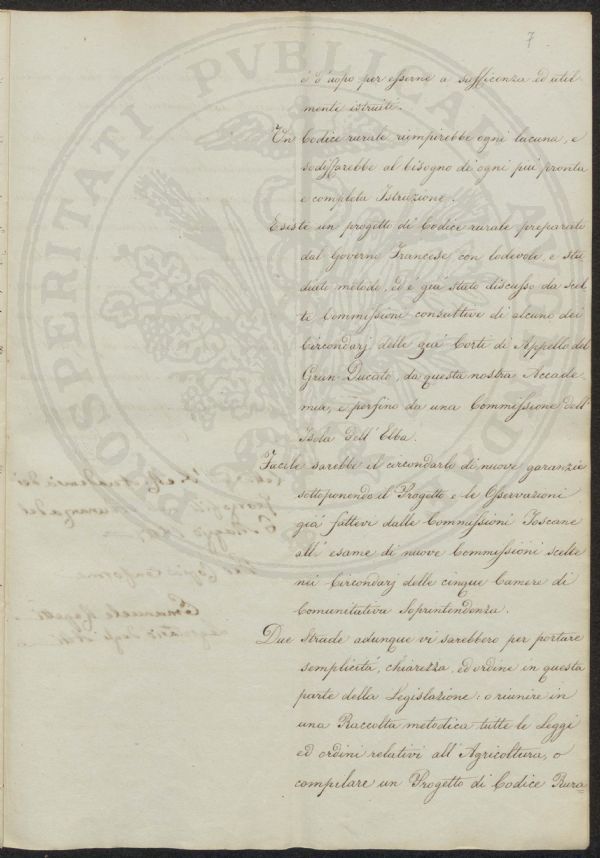 7
è d'uopo per esserne a sufficenza ed util-
mente istruite.
Un Codice rurale riempirebbe ogni lacuna, e
sodisfarebbe al bisogno di ogni più pronta
e completa Istruzione.
Esiste un progetto di Codice rurale preparato
dal Governo Francese con lodevole, e stu
diato metodo, ed è già stato discusso da scel
te Commissioni consultive di alcuno dei
Circondarj delle già Corti di Appello del
Gran-Ducato, da questa nostra Accade-
mia, e perfino da una Commissione dell'
Isola dell'Elba.
Facile sarebbe il circondarlo di nuove garanzie
sottoponendo il Progetto e le Osservazioni
già fattevi dalle Commissioni Toscane
all'esame di nuove Commissioni scelte
nei Circondarj delle cinque Camere di
Comunitativa Soprintendenza.
Due Strade adunque vi sarebbero per portare
semplicità, chiarezza, ed ordine in questa
parte della Legislazione: o riunire in
una Raccolta metodica tutte le Leggi
ed ordini relativi all'Agricoltura, o
compilare un Progetto di Codice Rura-
PROSPERITATI PUBLICAE AUGENDAE